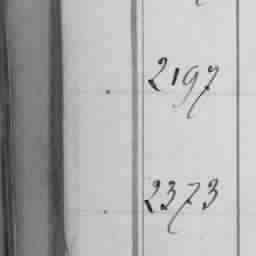 2197
2373